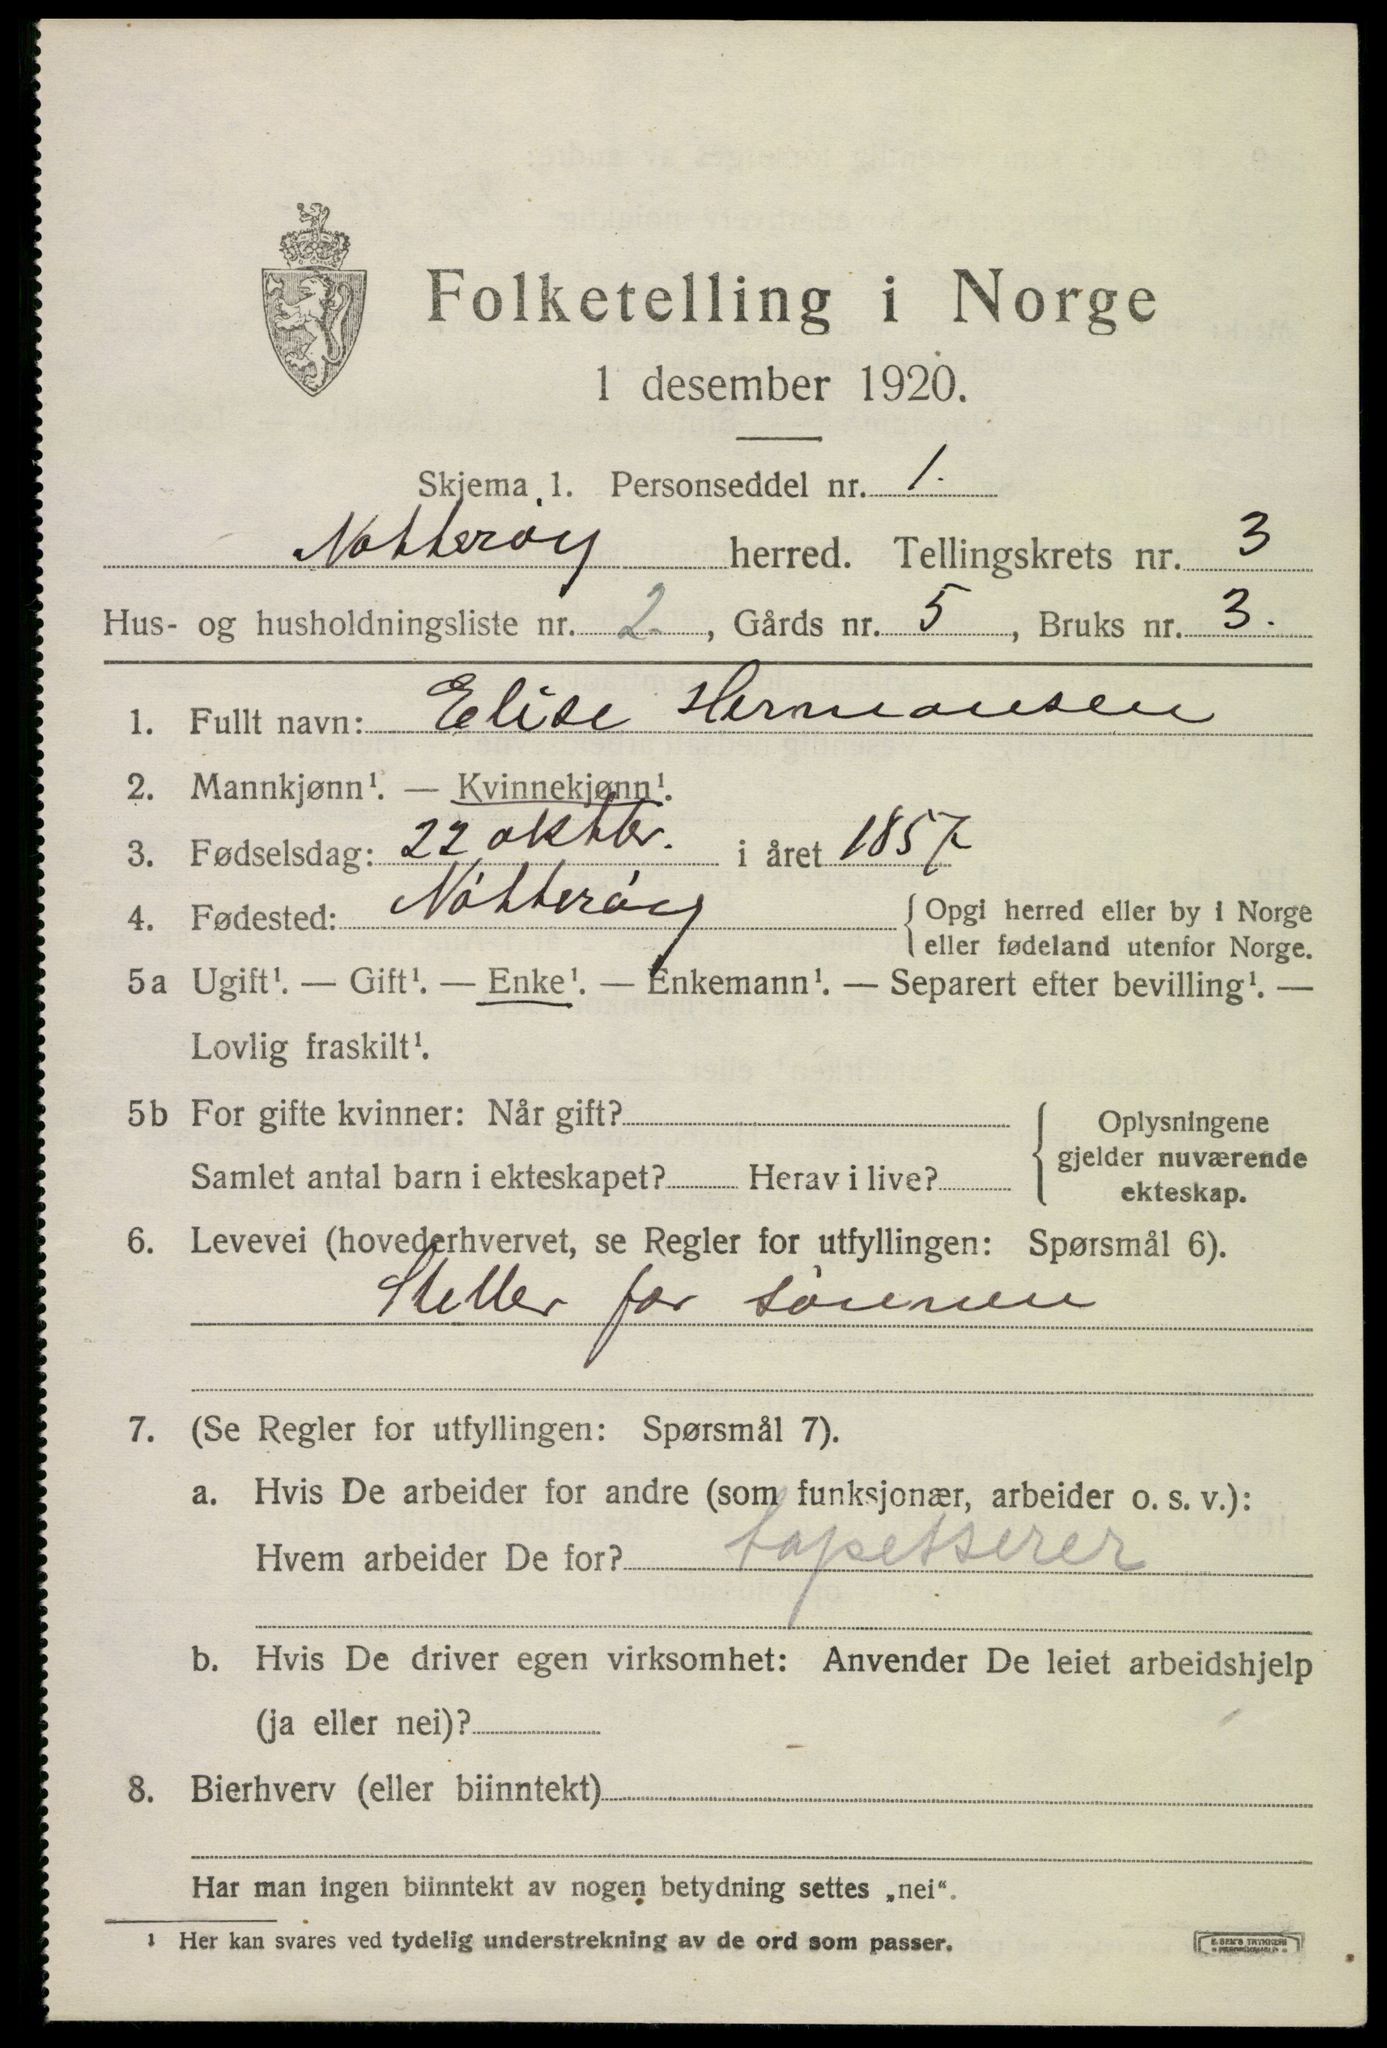 Folketelling i Norge
1 desember 1920.
Skjema 1. Personseddel nr. 1.
Nøtterøy herred. Tellingskrets nr. 3
Hus- og husholdningsliste nr. 2, Gårds nr. 5, Bruks nr. 3.
1. Fullt navn: Elise Hermansen
2. Mannkjønn¹. — Kvinnekjønn¹.
3. Fødselsdag: 22 oktbr. i året 1857
4. Fødested: Nøtterøy { Opgi herred eller by i Norge
eller fødeland utenfor Norge.
5a Ugift¹. — Gift¹. — Enke¹. — Enkemann¹. — Separert efter bevilling¹. —
Lovlig fraskilt¹.
5b For gifte kvinner: Når gift?
Samlet antal barn i ekteskapet? Herav i live?
{ Oplysningene
gjelder nuværende
ekteskap.
6. Levevei (hovederhvervet, se Regler for utfyllingen: Spørsmål 6).
Steller for sønnen
7. (Se Regler for utfyllingen: Spørsmål 7).
a. Hvis De arbeider for andre (som funksjonær, arbeider o. s. v.):
Hvem arbeider De for? tapetserer
b. Hvis De driver egen virksomhet: Anvender De leiet arbeidshjelp
(ja eller nei)?
8. Bierhverv (eller biinntekt)
Har man ingen biinntekt av nogen betydning settes „nei“.
¹ Her kan svares ved tydelig understrekning av de ord som passer.